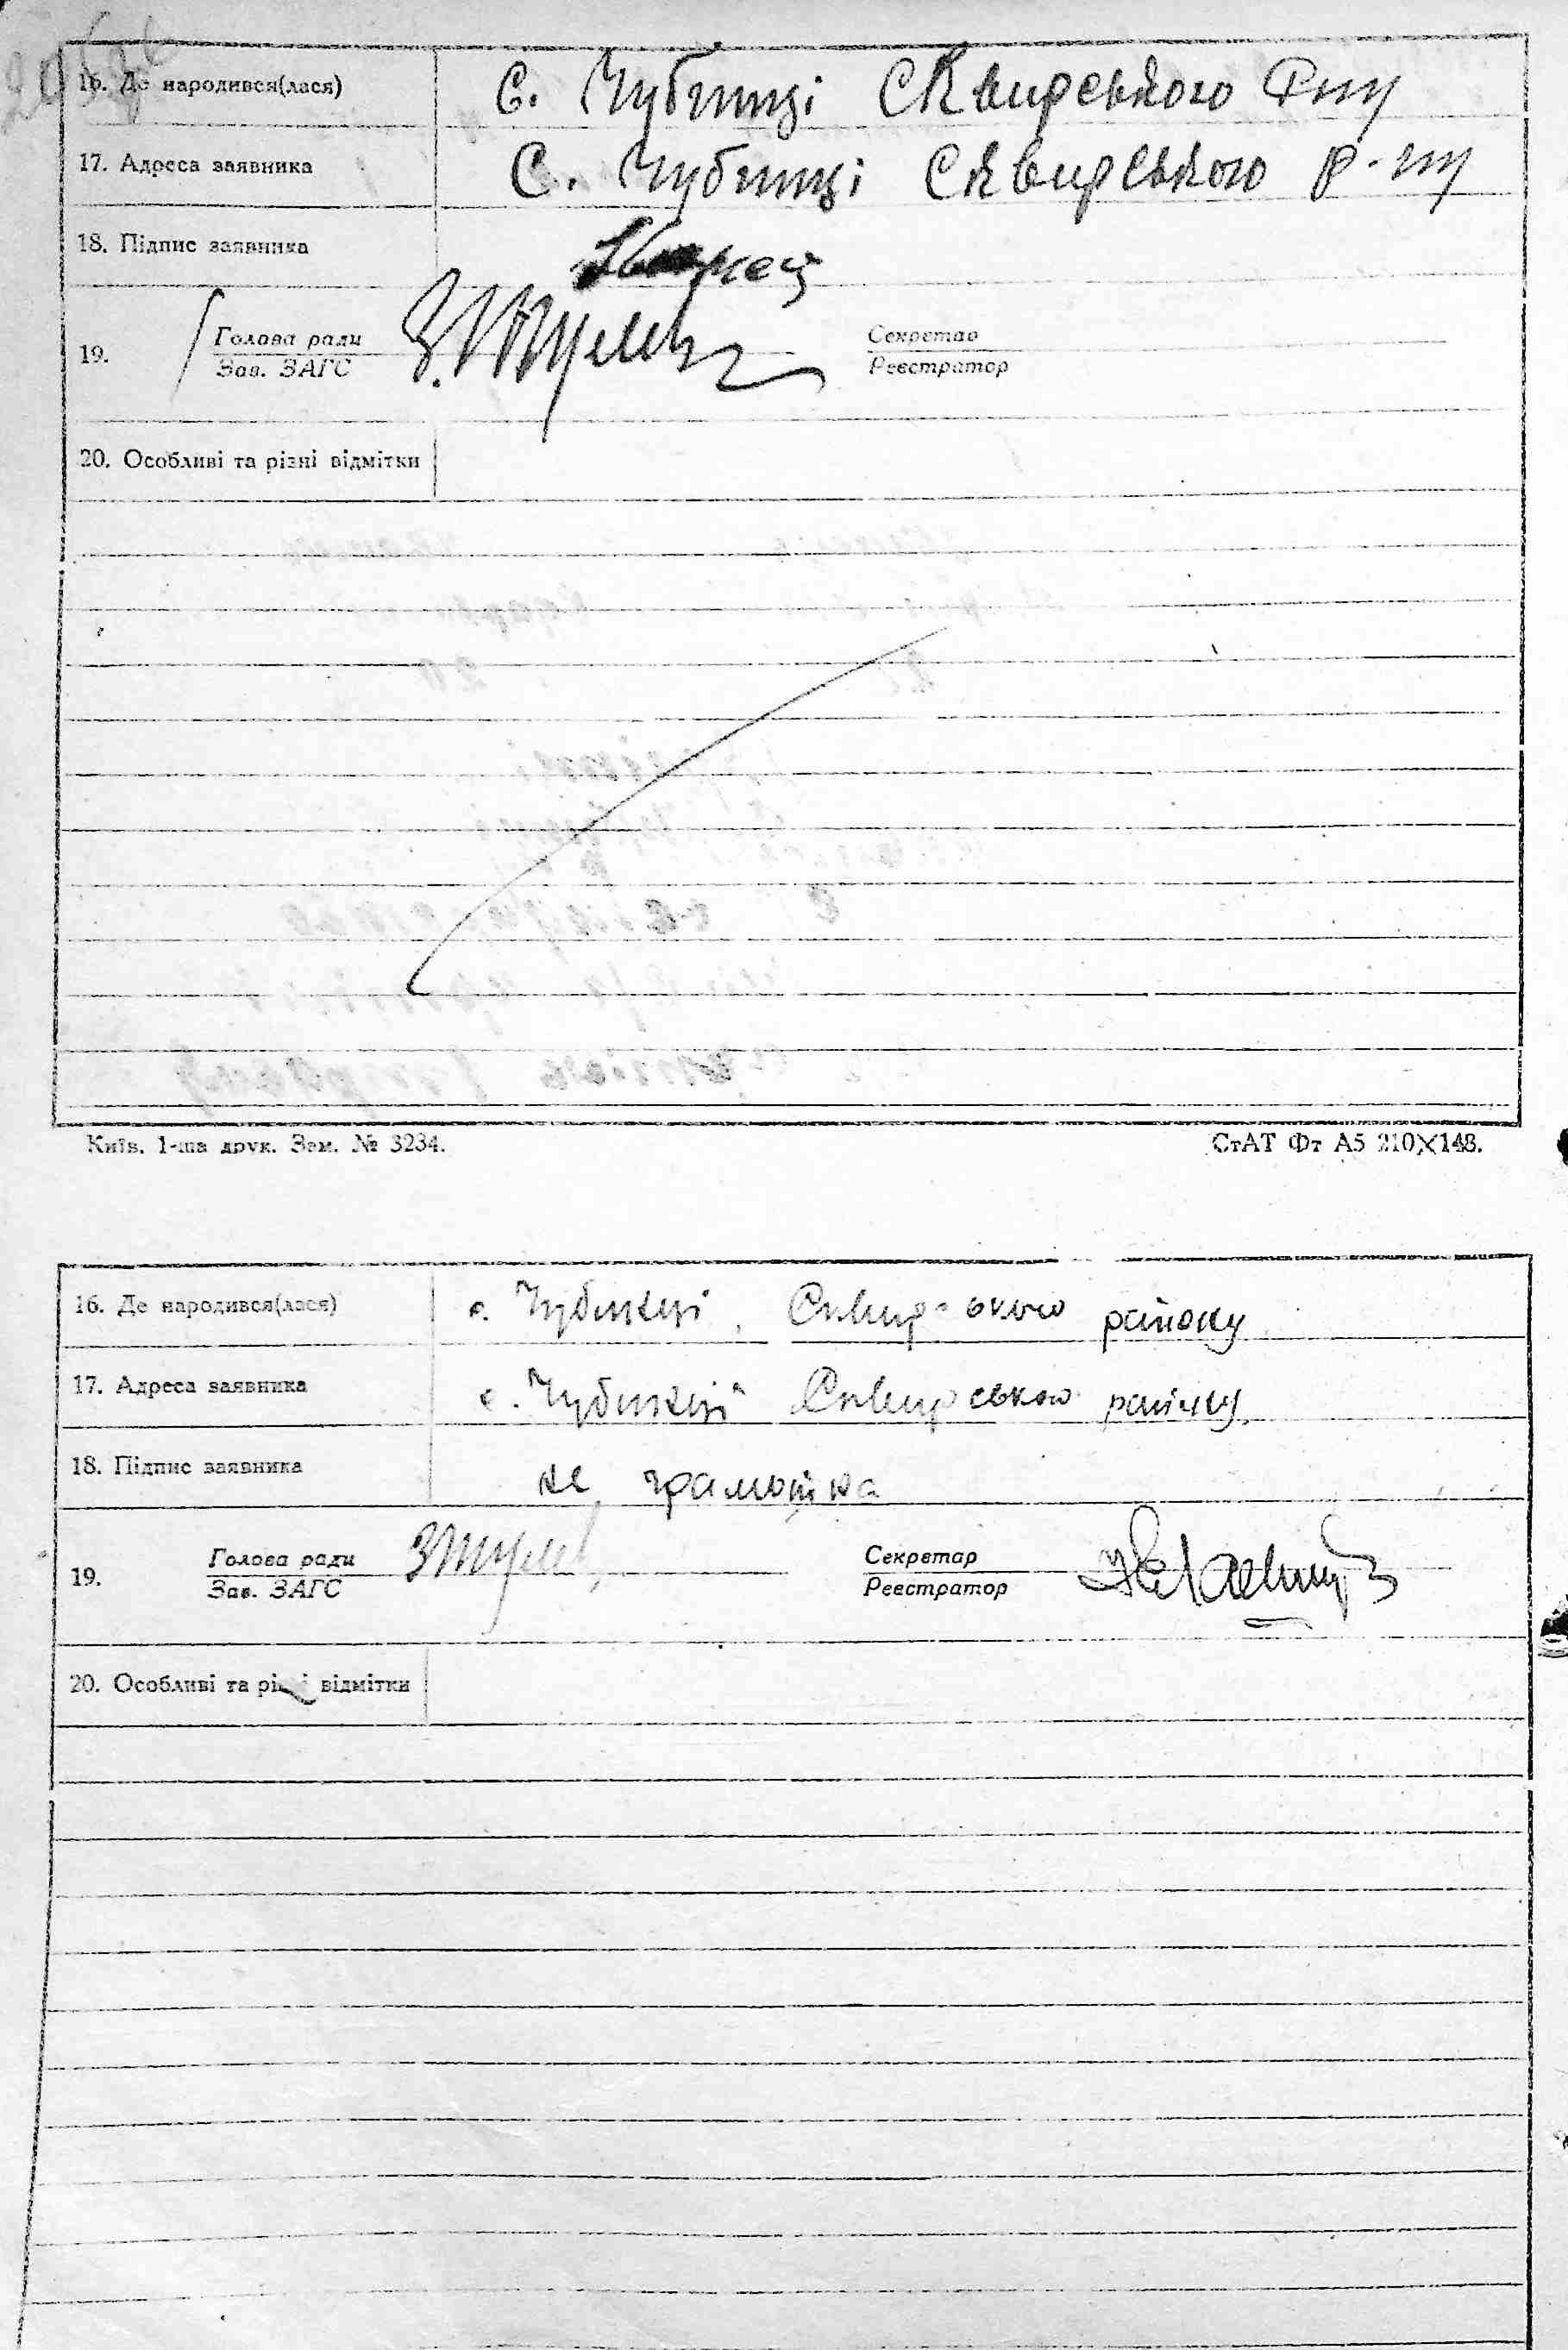 16. Де народився(лася) с. Чубинці Сквирського Рну
17. Адреса заявника С. Чубинці Сквирського р-ну
18. Підпис заявника
19. Голова ради Секретар
Зав. ЗАГС Реєстратор
20. Особливі та різні відмітки
Київ. 1-ша друк. Зам. № 3234. СтАТ Фт А5 210×148.
16. Де народився(лася) с. Чубинці, Сквирського району
17. Адреса заявника с. Чубинці Сквирського району
18. Підпис заявника не грамотна
19. Голова ради Секретар
Зав. ЗАГС Реєстратор
20. Особливі та різні відмітки